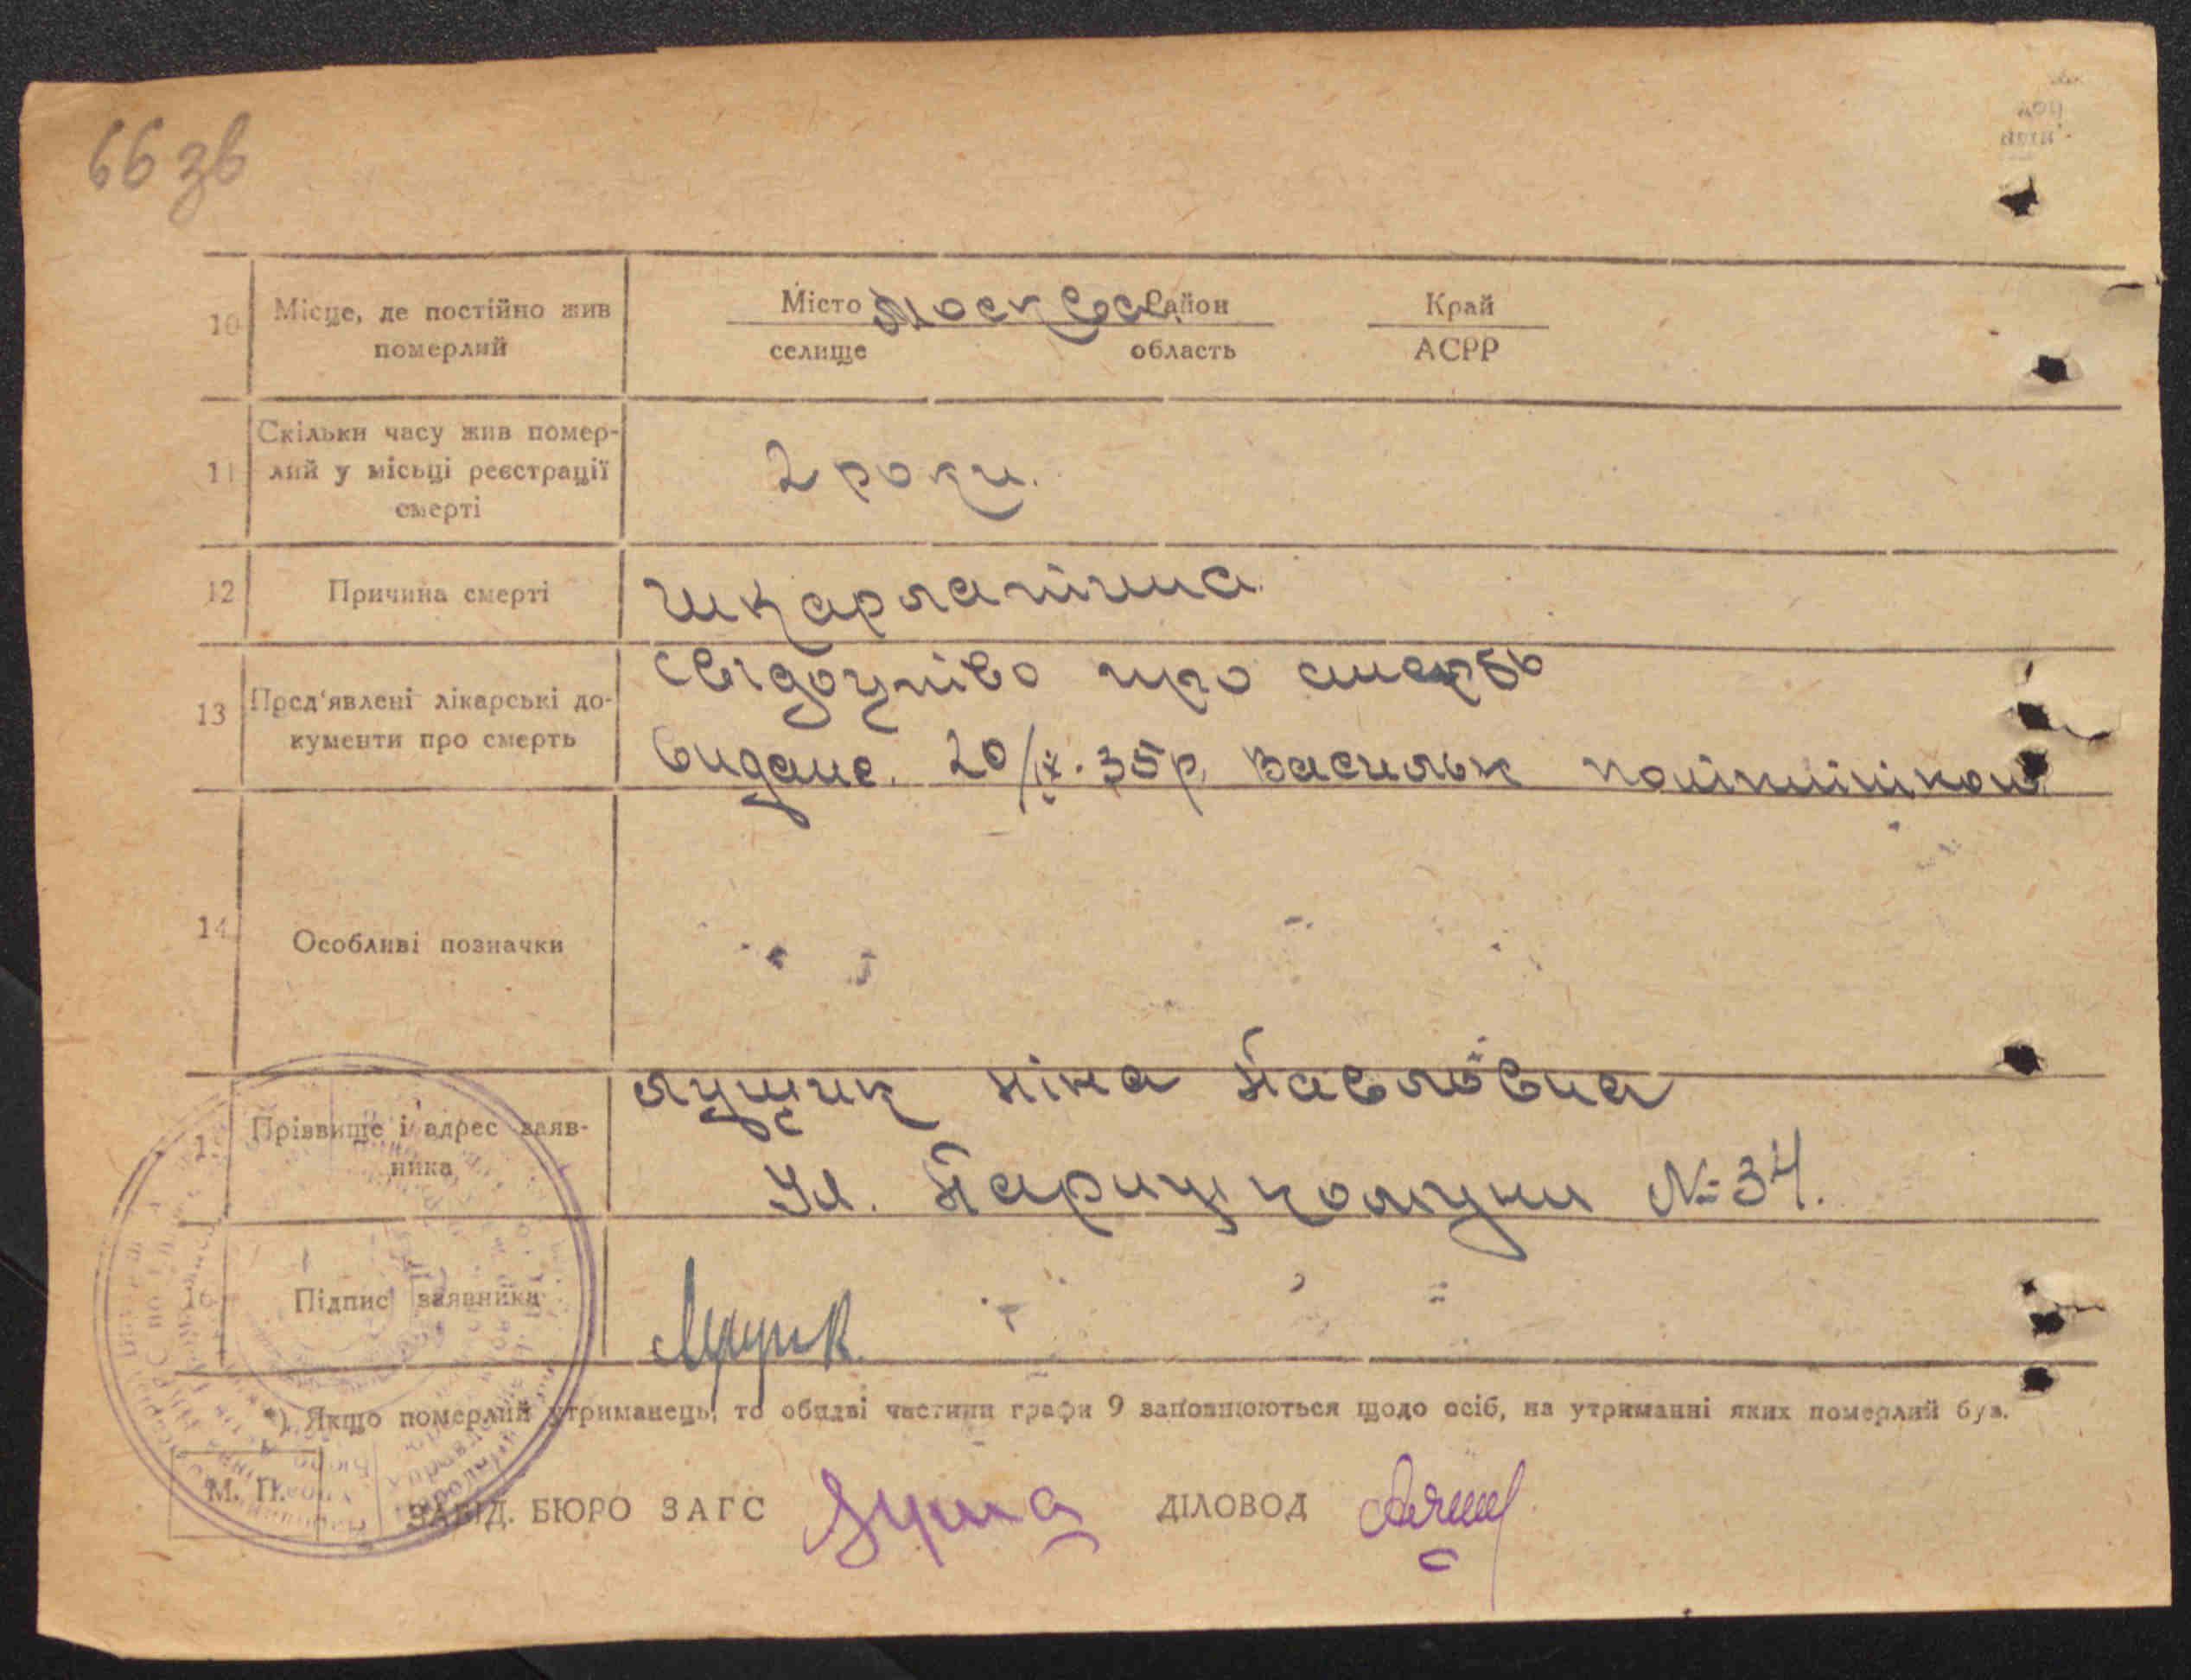 66 зв
10 Місце, де постійно жив померлий
Місто Москва Район Край
селище область АСРР
11 Скільки часу жив помер-
лий у місьці реєстрації
смерті
2 роки.
12 Причина смерті
шкарлатіна.
13 Пред'явлені лікарські до-
кументи про смерть
Свідоцтво про смерть
видане. 20/IX. 35 р. Васильк поліклінікою
14 Особливі позначки
Прізвище і адрес заяв-
ника
Лущик Ніна Павловна
Ул. Париж комуни № 34.
16 Підпис заявника
Лущик.
*) Якщо померлий утриманець, то обидві частини графи 9 заповнюються щодо осіб, на утриманні яких померлий був.
М. П.
ЗАВІД. БЮРО ЗАГС ДІЛОВОД